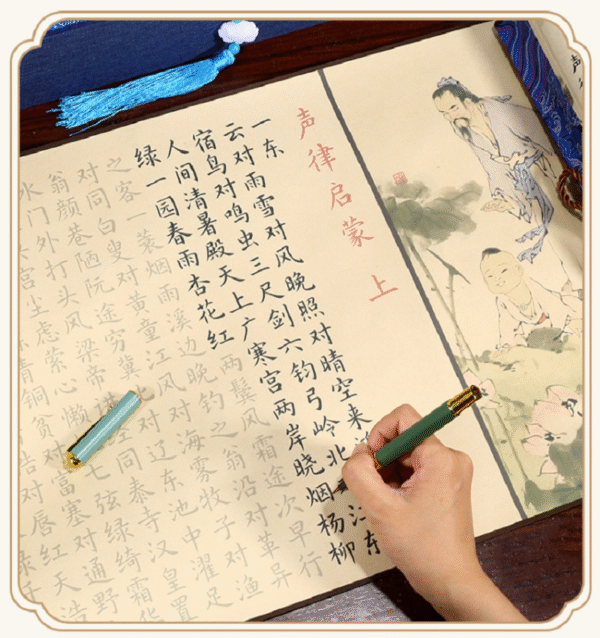 声律启蒙 上
一东
云对雨雪对风晚照对晴空来
宿鸟对鸣虫三尺剑六钧弓岭北江东
人间清暑殿天上广寒宫两岸晓烟杨柳
绿一园春雨杏花红两鬓风霜途次早行
之客一蓑烟雨溪边晚钓之翁沿对革异
对同白叟对黄童江风对海雾牧子对渔
翁颜巷陋阮途穷冀北对辽东池中濯足
水门外打头风梁帝讲经同泰寺汉皇置
宫尘虑萦心懒七弦绿绮霜华
青铜贫对富塞对通野
对唇红天浩